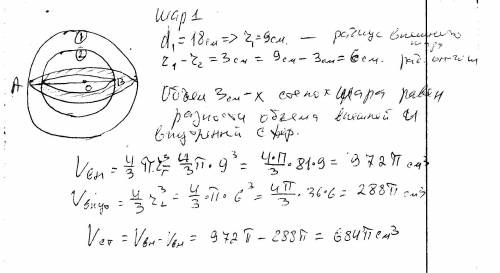 шар 1
① d₁ = 18см => r₁ = 9см. — радиус внешнего шара
② r₁ - r₂ = 3см = 9см - 3см = 6см.
А О В
Объем 3см-х стенок шара равен
разности объема внешней и
внутренней сфер.
Vвн = 4/3 π r₁³ = 4/3 π · 9³ = 4·π/3 · 81·9 = 972π см³
Vвнутр = 4/3 r₂³ = 4/3 · π · 6³ = 4π/3 · 36·6 = 288π см³
Vст = Vвн - Vвн = 972π - 288π = 684π см³